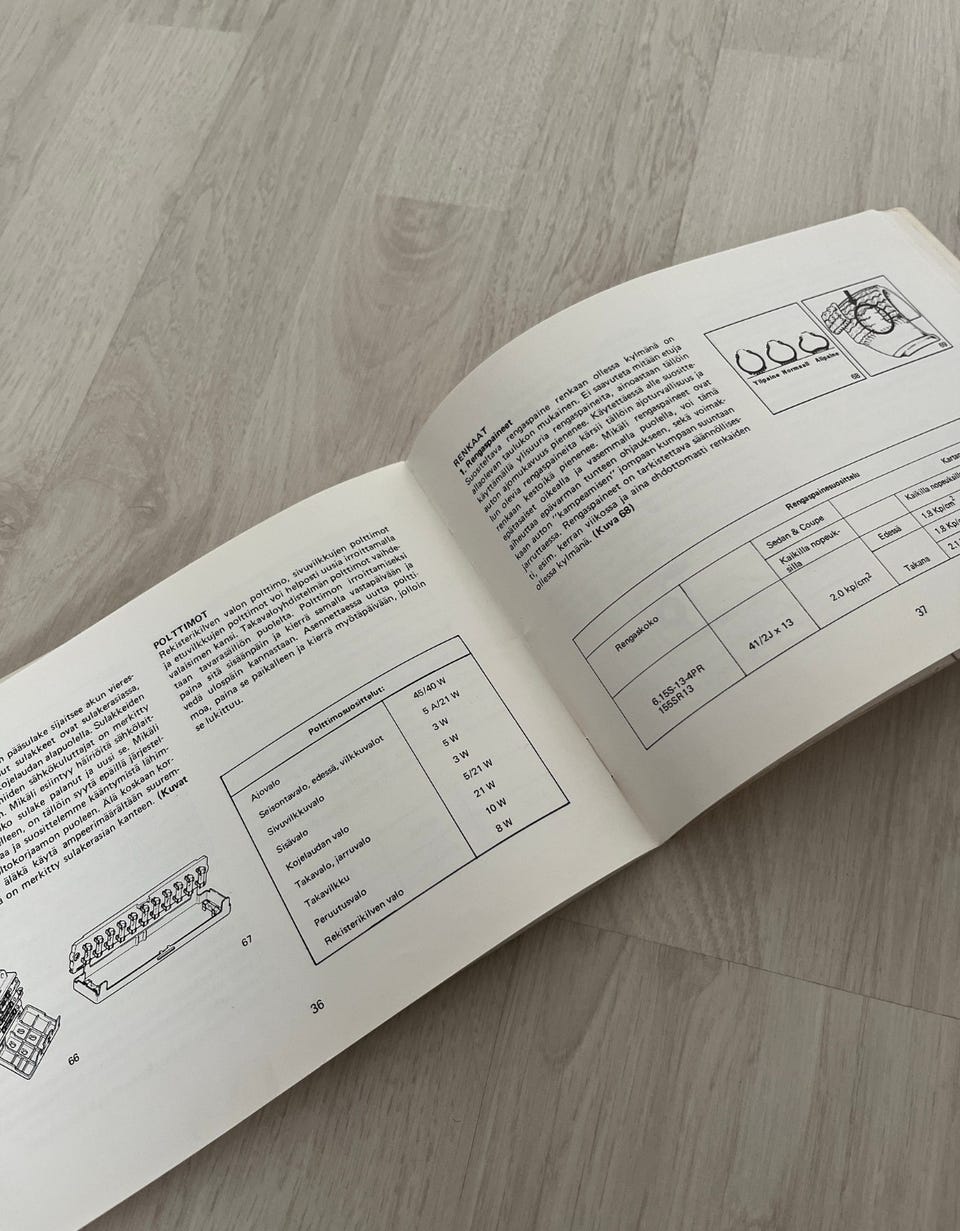 pääsulake sijaitsee akun vieres-
sulakkeet ovat sulakerasiassa,
kojelaudan alapuolella. Sulakkeiden
niiden sähkökuluttajat on merkitty
Mikäli esiintyy häiriöitä sähkölait-
sulake palanut ja uusi se. Mikäli
on tällöin syytä epäillä järjestel-
ja suosittelemme kääntymistä lähim-
puoleen. Älä koskaan kor-
äläkä käytä ampeerimäärältään suurem-
on merkitty sulakerasian kanteen. (Kuvat
66
67
POLTTIMOT
Rekisterikilven valon polttimo, sivuvilkkujen polttimot
ja etuvilkkujen polttimot voi helposti uusia irroittamalla
valaisimen kansi. Takavaloyhdistelmän polttimot vaihde-
taan tavarasäiliön puolelta. Polttimon irroittamiseksi
paina sitä sisäänpäin ja kierrä samalla vastapäivään ja
vedä ulospäin kannastaan. Asennettaessa uutta poltti-
moa, paina se paikalleen ja kierrä myötäpäivään, jolloin
se lukittuu.
Polttimosuosittelut:
Ajovalo 45/40 W
Seisontavalo, edessä, vilkkuvalot 5 A/21 W
Sivuvilkkuvalo 3 W
Sisävalo 5 W
Kojelaudan valo 3 W
Takavalo, jarruvalo 5/21 W
Takavilkku 21 W
Peruutusvalo 10 W
Rekisterikilven valo 8 W
36
RENKAAT
1. Rengaspaineet
Suositeltava rengaspaine renkaan ollessa kylmänä on
allaolevan taulukon mukainen. Ei saavuteta mitään etuja
käyttämällä ylisuuria rengaspaineita, ainoastaan tällöin
auton ajomukavuus pienenee. Käytettäessä alle suositte-
lun olevia rengaspaineita kärsii tällöin ajoturvallisuus ja
renkaan kestoikä pienenee. Mikäli rengaspaineet ovat
epätasaiset oikealla ja vasemmalla puolella, voi tämä
aiheuttaa epävarman tunteen ohjaukseen, sekä voimak-
kaan auton "kampeamisen" jompaan kumpaan suuntaan
jarruttaessa. Rengaspaineet on tarkistettava säännöllises-
ti, esim. kerran viikossa ja aina ehdottomasti renkaiden
ollessa kylmänä. (Kuva 68)
Ylipaine Normaali Alipaine
68
69
Rengaspainesuosittelu
Rengaskoko
Sedan & Coupe
Kaikilla nopeuk-
silla
Edessä
1.8 Kp/cm²
6.15S-13-4PR
155SR13
41/2J x 13
2.0 kp/cm²
Takana
1.8 Kp/c
2.1
37